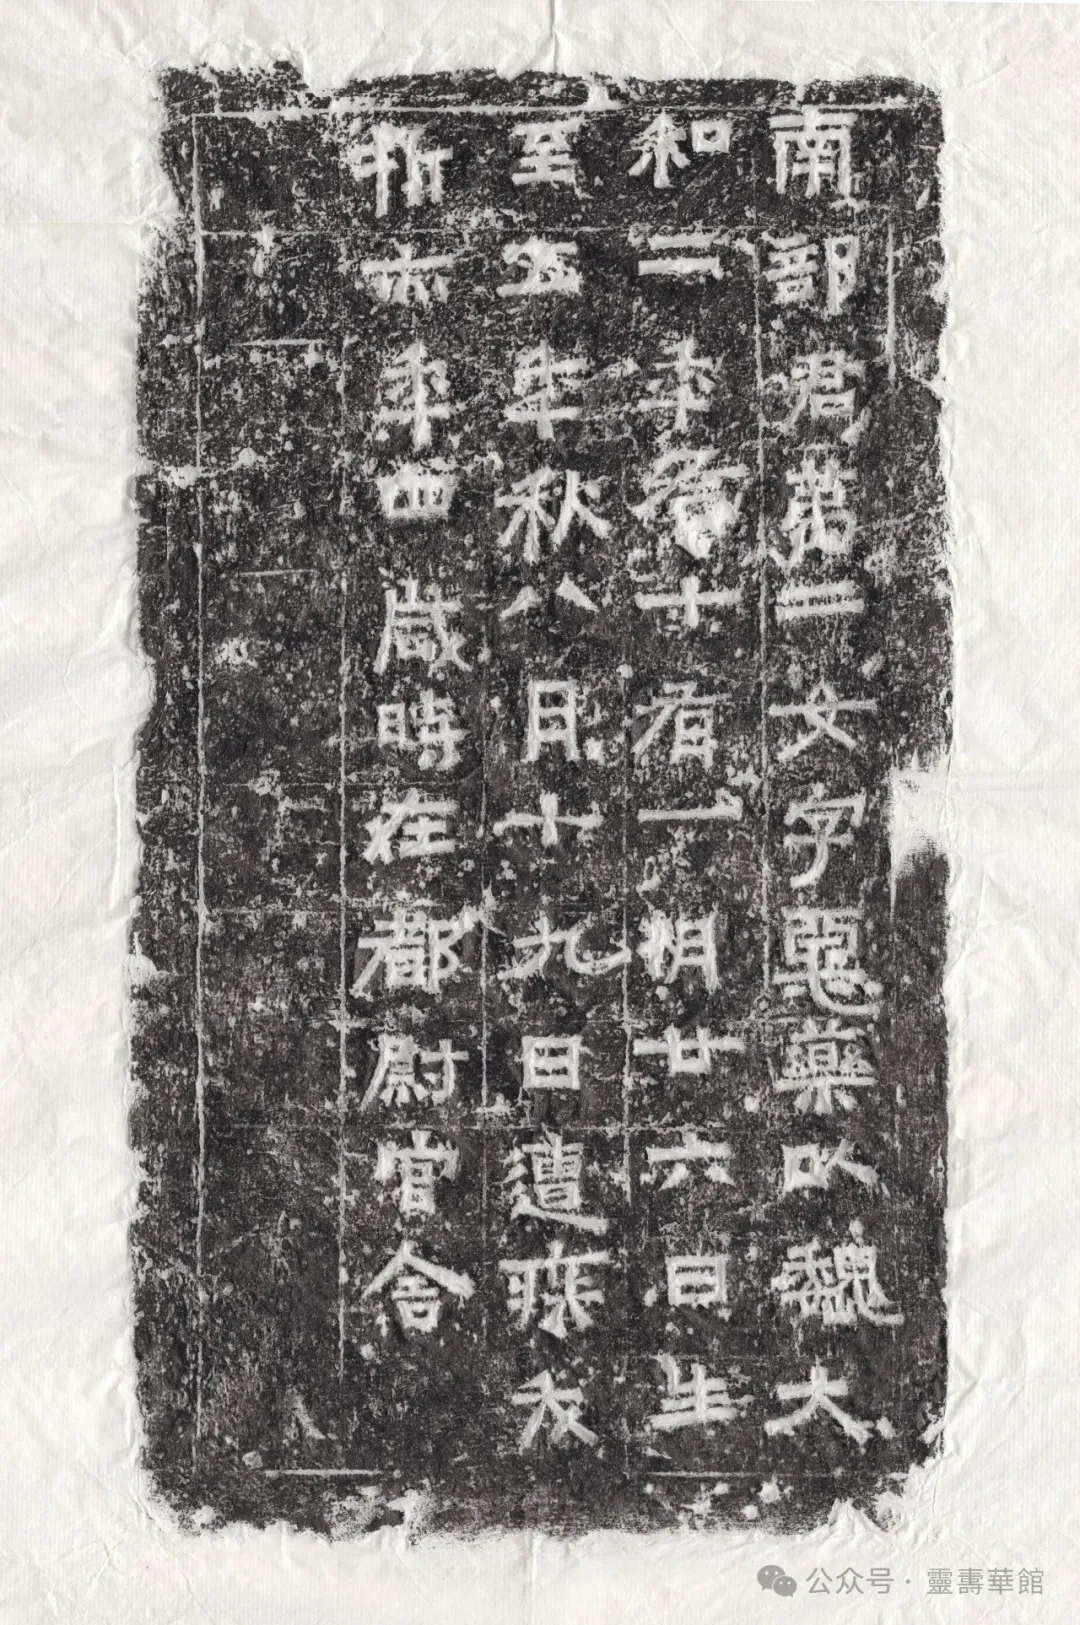 南部君第二女字惡藥以魏大
和二年十有一朔廿六日生
至五年秋八月十九日遭疾夭
折亦年四歲時在都尉官舍
公众号·靈壽華館